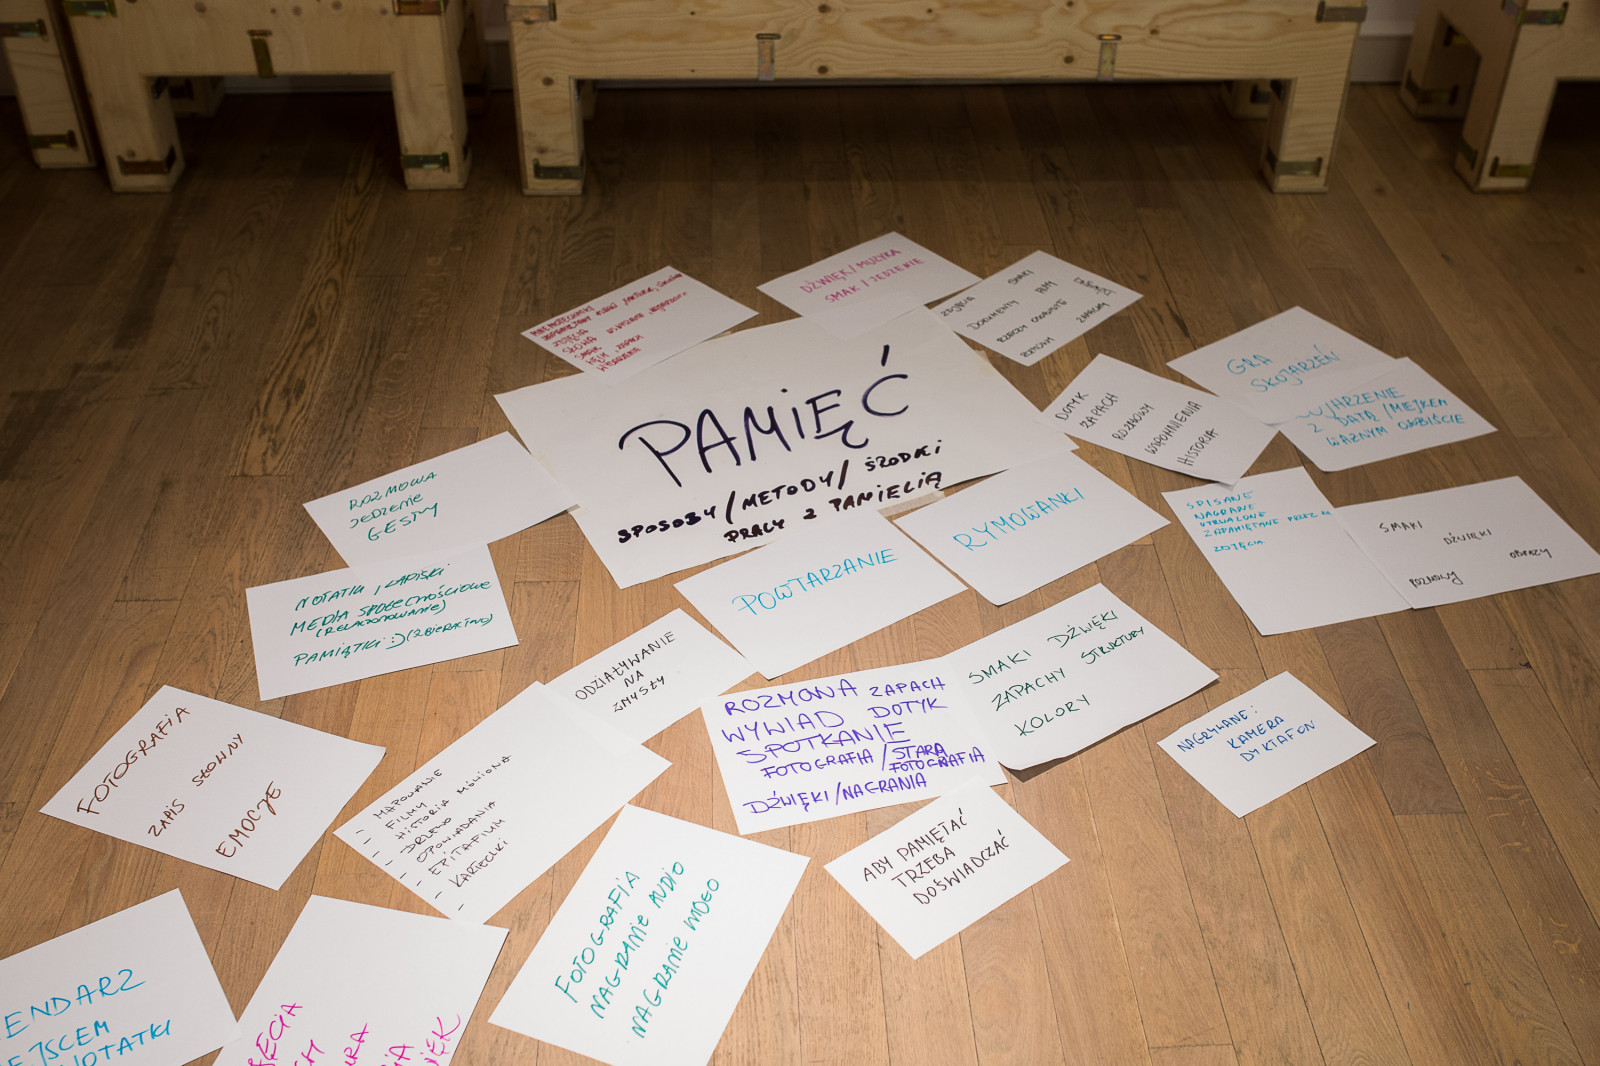 DŹWIĘK/MUZYKA
SMAK I JEDZENIE
ZDJĘCIA
SMAKI
DOKUMENTY
FILM
RZECZY OSOBISTE
ZAPACHY
ROZMOWY
ZDJĘCIA
SŁOWA
SMAK
WĘCH ZAPACH
WYDARZENIA
PAMIĘĆ
SPOSOBY/METODY/ŚRODKI
PRACY Z PAMIĘCIĄ
DOTYK
ZAPACH
ROZMOWY
WSPOMNIENIA
HISTORIA
GRA
SKOJARZEŃ
Z DATĄ/MIEJSCEM
WAŻNYM OSOBIŚCIE
ROZMOWA
JEDZENIE
GESTY
NOTATKI, ZAPISKI
MEDIA SPOŁECZNOŚCIOWE
(RELACJONOWANIE)
PAMIĄTKI :) (ZBIERACTWO)
POWTARZANIE
RYMOWANKI
SPISANE
NAGRANE
UTRWALONE
ZAPAMIĘTANE PRZEZ
ZDJĘCIA
SMAKI
DŹWIĘKI
OBRAZY
ROZMOWY
ODZIAŁYWANIE
NA
ZMYSŁY
ROZMOWA ZAPACH
WYWIAD DOTYK
SPOTKANIE
FOTOGRAFIA/STARA
FOTOGRAFIA
DŹWIĘKI/NAGRANIA
SMAKI DŹWIĘKI
ZAPACHY STRUKTURY
KOLORY
NAGRYWANE:
KAMERA
DYKTAFON
FOTOGRAFIA
ZAPIS SŁOWNY
EMOCJE
- MAPOWANIE
- FILMY
- HISTORIA MÓWIONA
- DRZEWO
- OPOWIADANIA
- EPITAFIUM
- KARTECZKI
-
FOTOGRAFIA
NAGRANIE AUDIO
NAGRANIE WIDEO
ABY PAMIĘTAĆ
TRZEBA
DOŚWIADCZAĆ
ENDARZ
EJSCEM
NOTATKI